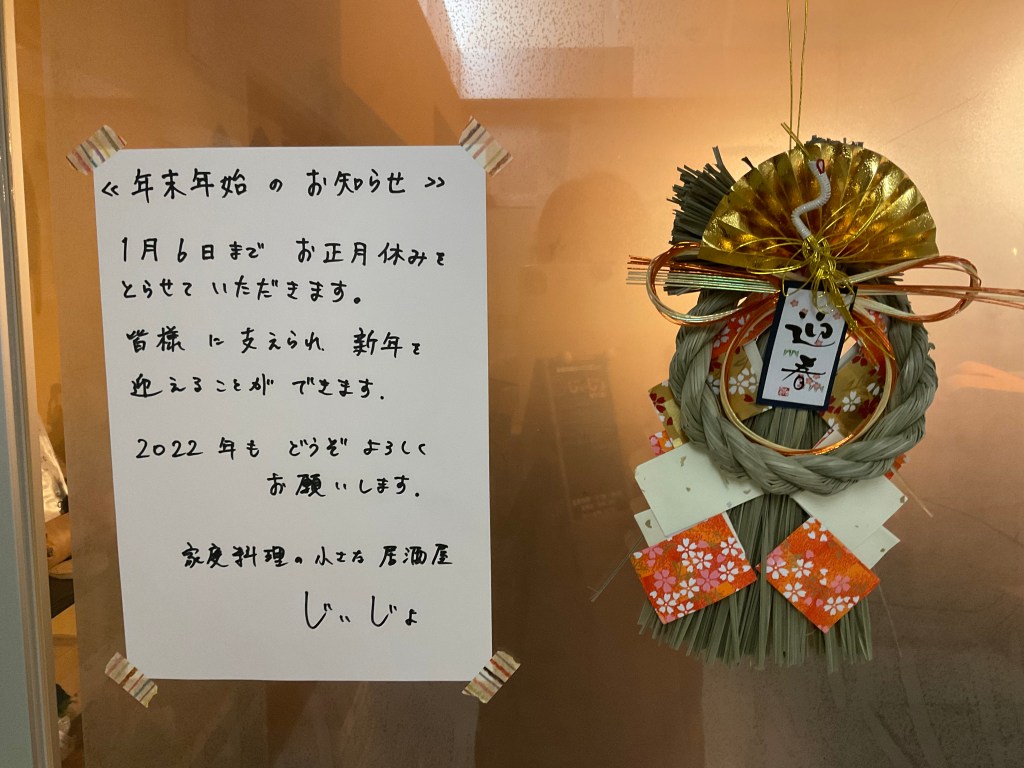 ≪年末年始 の お知らせ≫
1月6日まで お正月休みを
とらせていただきます。
皆様 に 支えられ 新年を
迎えることが できます.
2022 年も どうぞ よろしく
お願いします.
家庭料理の小さな 居酒屋
じぃじょ
迎春